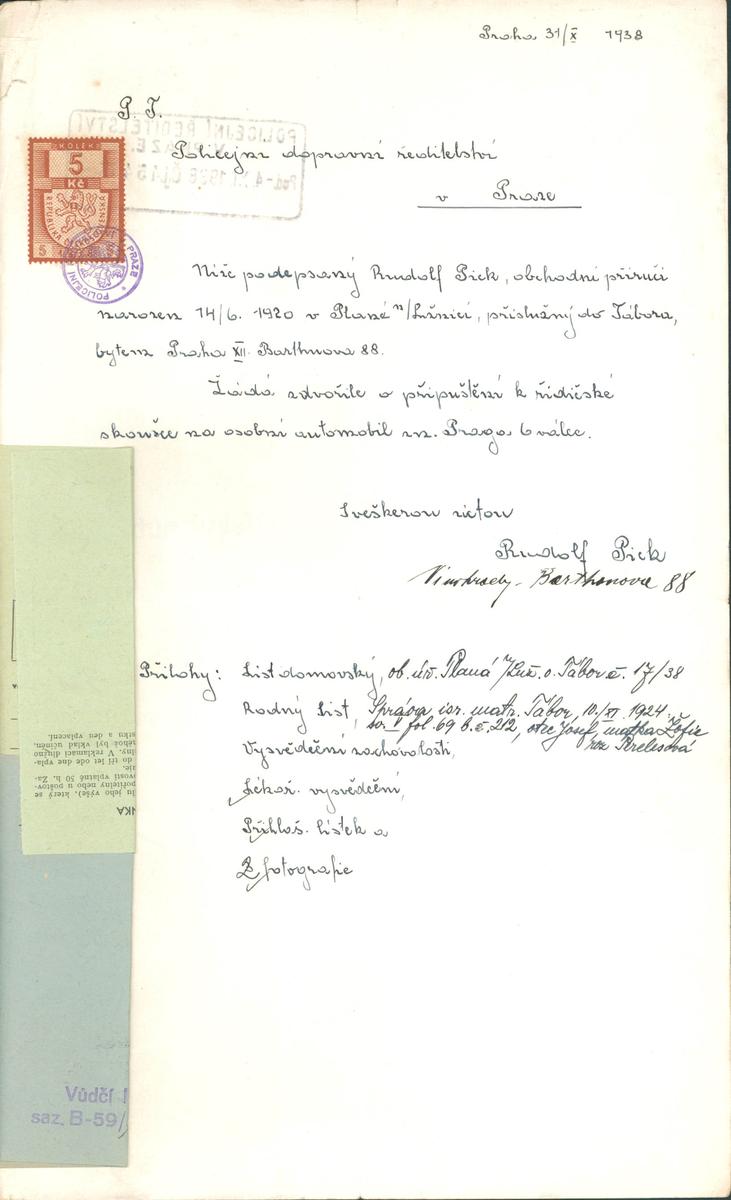 Praha 31/X 1938
P. T.
Policejní dopravní ředitelství
v Praze
KOLEK
5
Kč
REPUBLIKA
5
POLICEJNÍ
PRAZE
POLICEJNÍ ŘEDITELSTVÍ
Níže podepsaný Rudolf Pick, obchodní příručí
narozen 14/6. 1920 v Plané n/Lužnicí, příslušný do Tábora,
bytem Praha XII. Barthouova 88.
Žádá zdvořile o připuštění k řidičské
zkoušce na osobní automobil zn. Praga 6 válce.
S veškerou úctou
Rudolf Pick
Vinohrady - Barthouova 88
Přílohy: List domovský, ob. úř. Planá n/Luž. o. Tábor č. 17/38
Rodný list, Správa isr. matr. Tábor, 10./XI. 1924.
sv. V fol. 69 b. č. 212, otec Josef, matka Žofie
roz. Perelesová
Vysvědčení zachovalosti,
Lékař. vysvědčení,
Přihlaš. lístek a
2 fotografie
NKA
lu jeho (výše), který se
pořitelny nebo u poštov-
ivosti vplatné 50 h. Za-
uje.
do tří let ode dne vpla-
lny. V reklamaci dlužno
něhož byl vklad učiněn.
stku a den vplacení.
Vůdčí
saz. B-59/